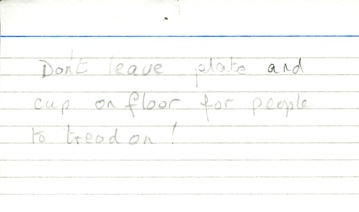 Don't leave plate and
cup on floor for people
to tread on!